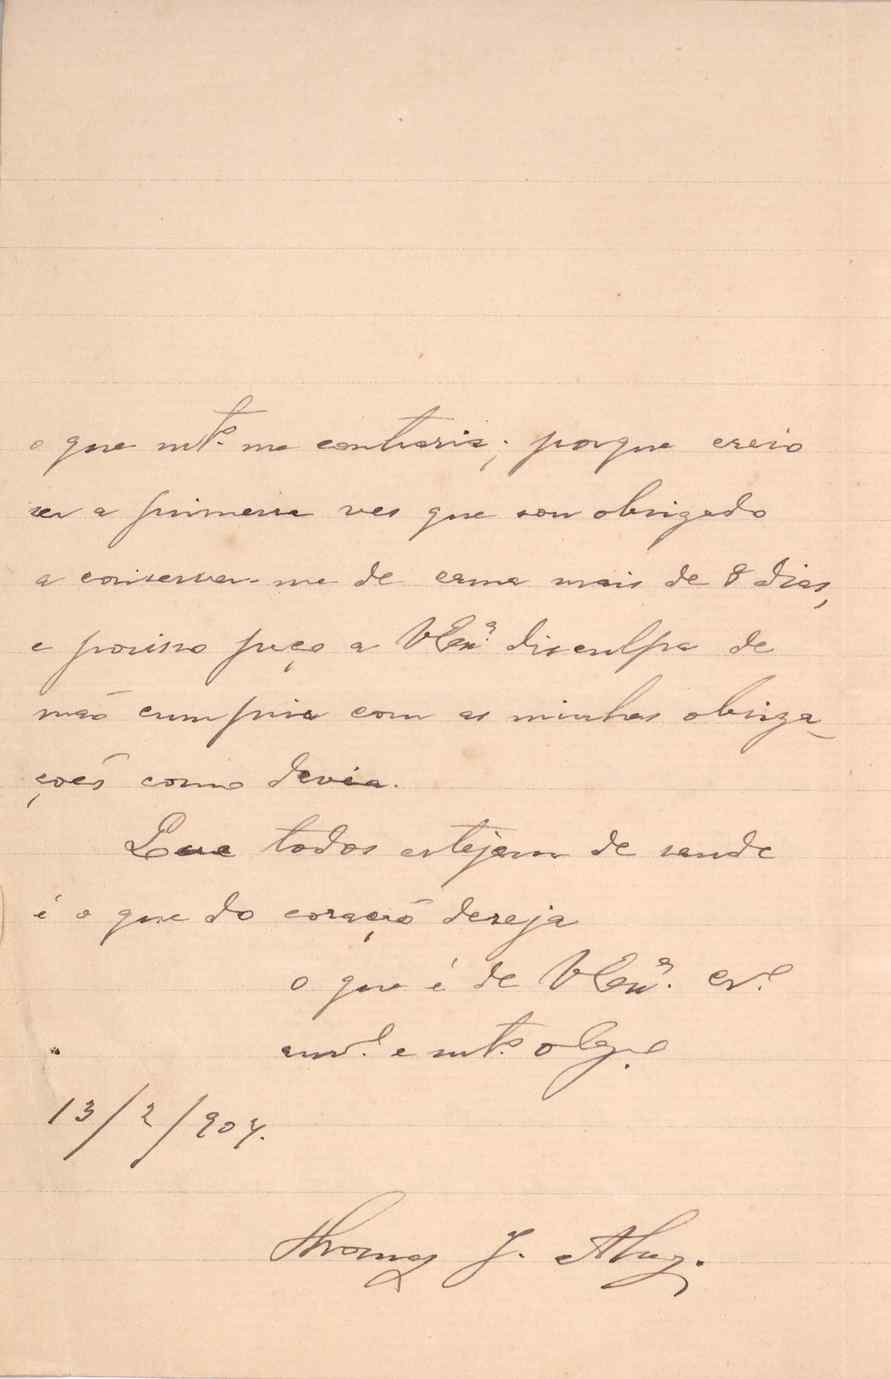 o que mtº. me contraria; porque creio
ser a primeira ves que sou obrigado
a conservar-me de cama mais de 8 dias,
e porisso peço a VExª. disculpa de
não cumprir com as minhas obriga_
ções como devia.
Que todos estejam de saude
é o que do coração deseja
o que é de VExª. crº.
amº. e mtº. obgº.
13/2/907.
Thomaz J.